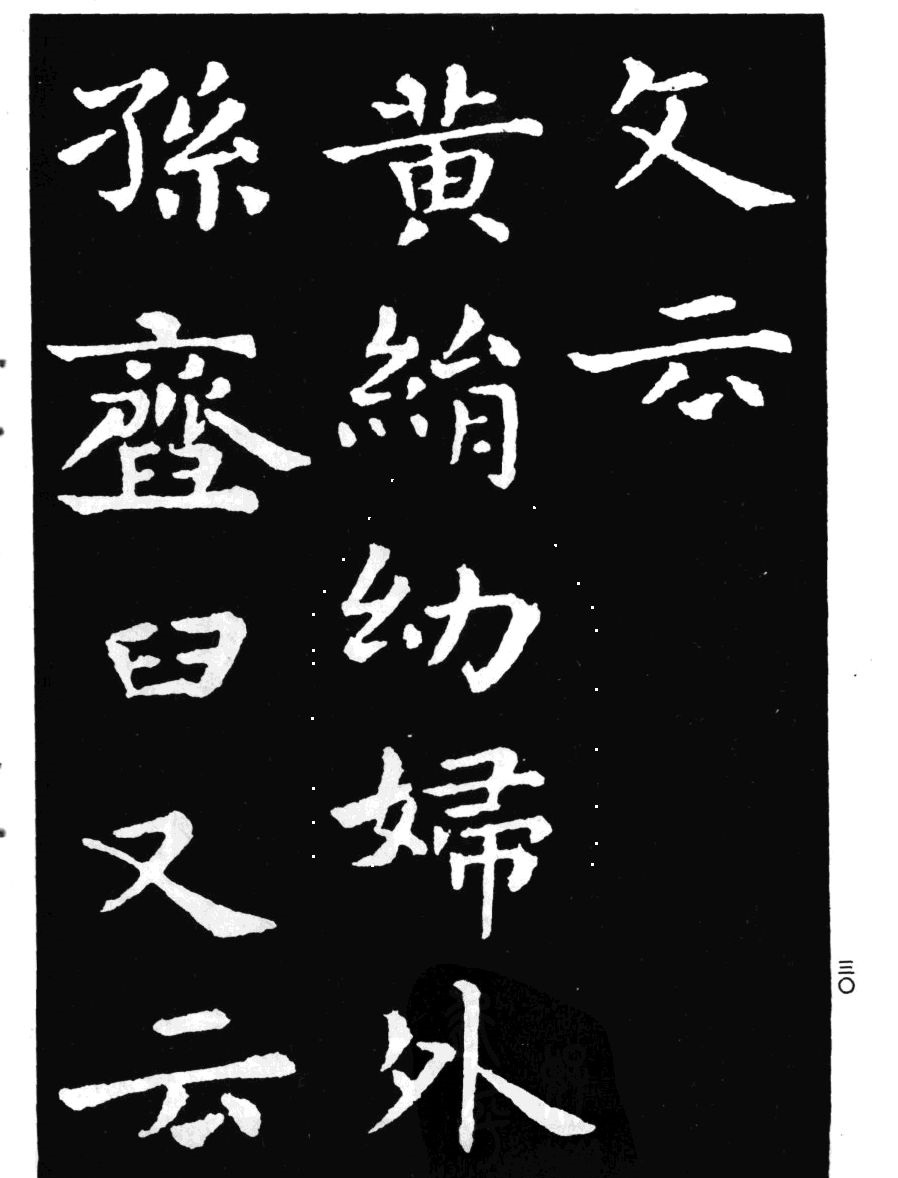 文云
黄絹幼婦外
孫齏臼又云
三〇